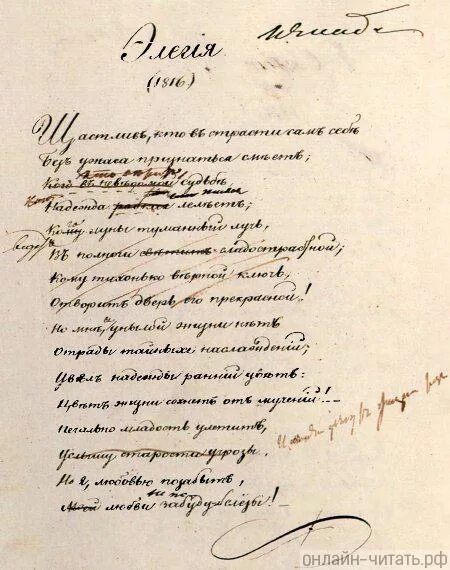 Элегія
(1816)
Щастливъ, кто въ страсти самъ себѣ
Безъ ужаса признаться смѣетъ;
Кого въ невѣдомой судьбѣ
Надежда лелѣетъ;
Кому луны туманный лучь,
Въ полночи сладострастной;
Кому тихонько вѣрной ключь,
Отворитъ дверь его прекрасной!
Но мнѣ въ унылой жизни нѣтъ
Отрады тайныхъ наслажденій;
Увялъ надежды ранній цвѣтъ:
Цвѣтъ жизни сохнетъ отъ мученій! —
Печально младость улетитъ,
Услышу старости угрозы,
Но я, любовью позабытъ,
Моей любви забуду ль слезы! —
онлайн-читать.рф